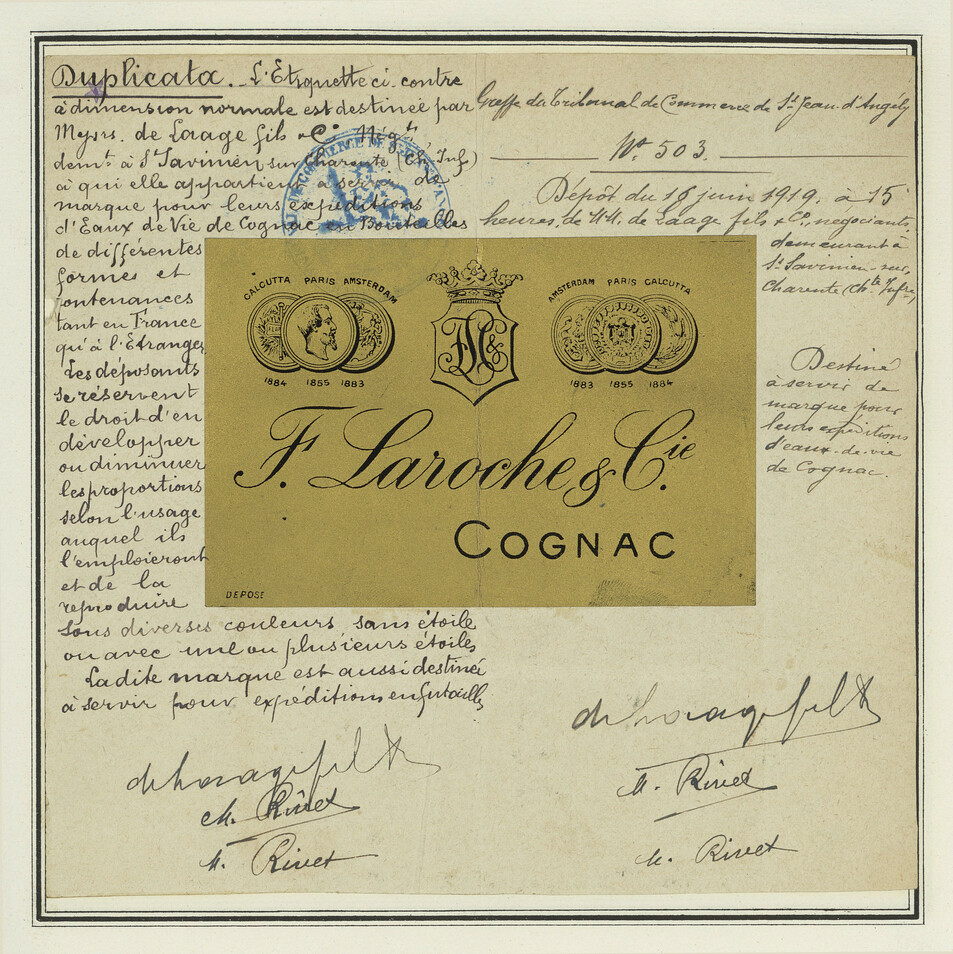 Duplicata. L'Etiquette ci-contre
à dimension normale est destinée par
Meyrs. de Laage fils & Cº. Négts,
demt à St Savinien sur Charente (Ch. Inf)
à qui elle appartient à servir de
marque pour leurs expéditions
d'Eaux de Vie de Cognac en Bouteilles
de différentes
formes et
contenances
tant en France
qu'à l'Etranger
Les déposants
se réservent
le droit d'en
développer
ou diminuer
les proportions
selon l'usage
auquel ils
l'emploieront
et de la
reproduire
sous diverses couleurs sans étoile
ou avec une ou plusieurs étoiles
Ladite marque est aussi destinée
à servir pour expéditions en futailles
de Laage fils & Co
M. Rivet
M. Rivet
Greffe du Tribunal de Commerce de St Jean d'Angély
Nº 503.
Dépôt du 16 juin 1919. à 15
heures, de MM. de Laage fils & Cº, négociants,
demeurant à
St Savinien-sur-
Charente (Chte Infre)
Destiné
à servir de
marque pour
leurs expéditions
d'eaux-de-vie
de Cognac.
de Laage fils & Co
M. Rivet
M. Rivet
CALCUTTA PARIS AMSTERDAM
1884 1855 1883
AMSTERDAM PARIS CALCUTTA
1883 1855 1884
F. Laroche & Cie.
COGNAC
DEPOSE